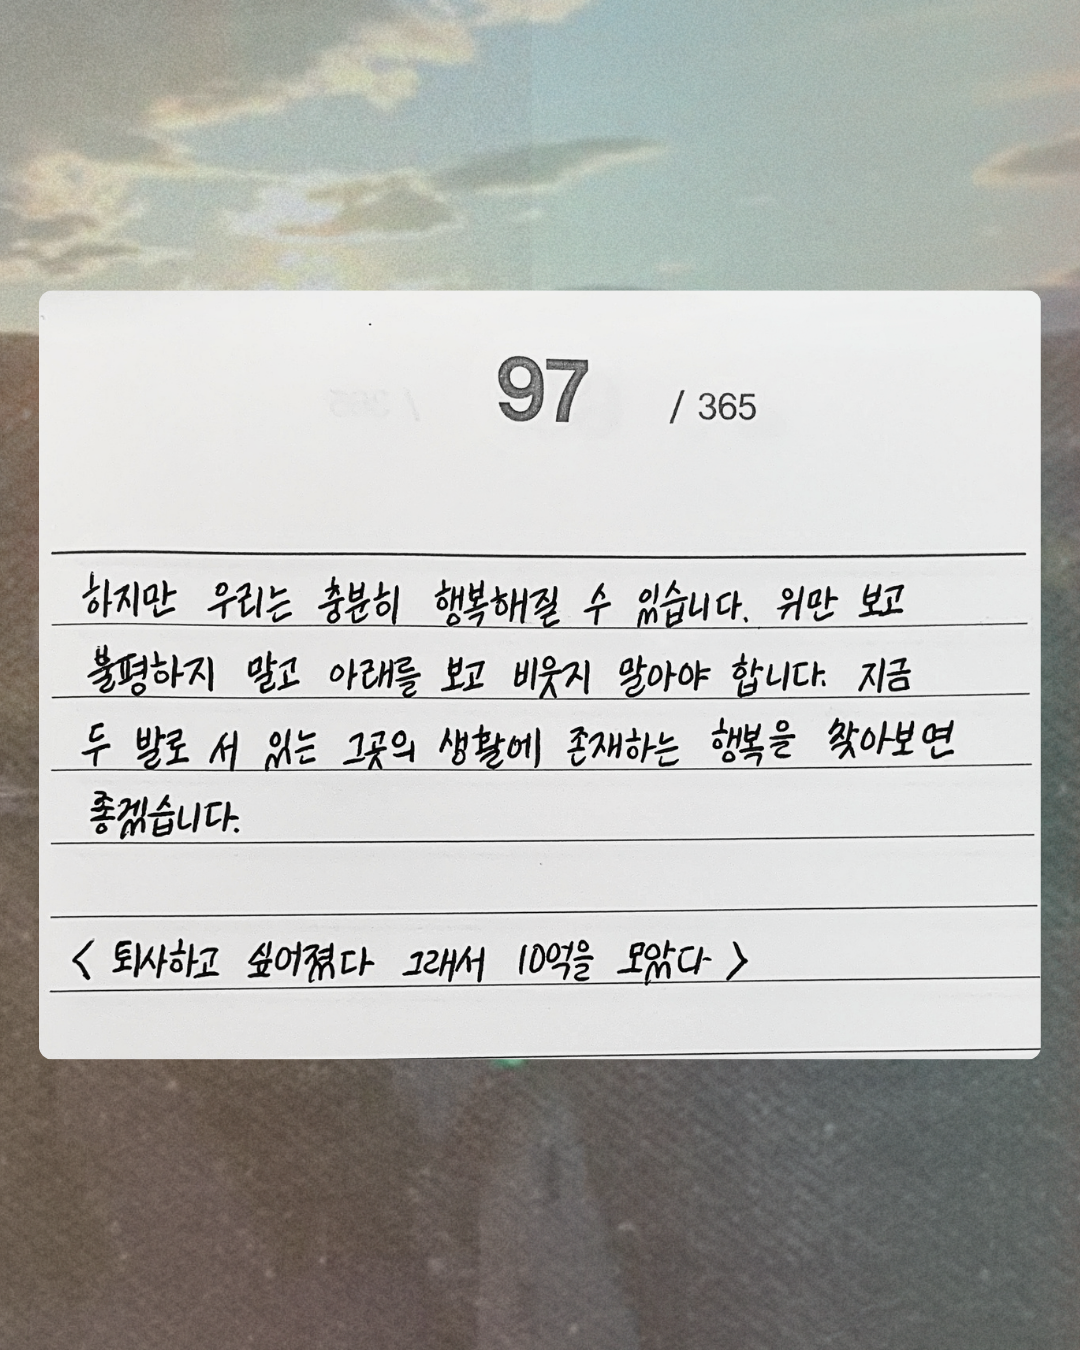 97 / 365
하지만 우리는 충분히 행복해질 수 있습니다. 위만 보고
불평하지 말고 아래를 보고 비웃지 말아야 합니다. 지금
두 발로 서 있는 그곳의 생활에 존재하는 행복을 찾아보면
좋겠습니다.
< 퇴사하고 싶어졌다 그래서 10억을 모았다 >